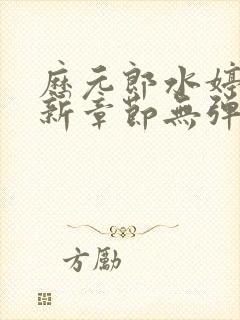 歷元郎水婷
新章節無彈
方勵